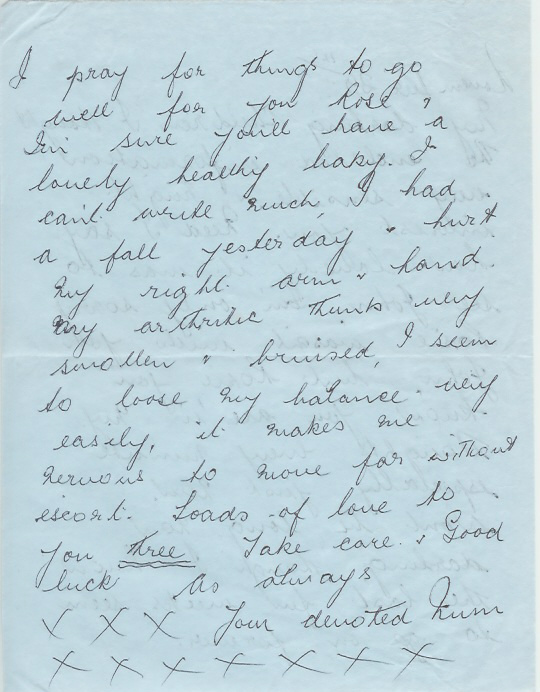 I pray for things to go
well for you Rose &
I'm sure you'll have a
lovely healthy baby. I
can't write much, I had
a fall yesterday & hurt
my right arm & hand.
my arthritic thumb very
swollen & bruised, I seem
to loose my balance very
easily, it makes me
nervous to move far without
escort. Loads of love to
you three Take care & Good
luck As always
X X X Your devoted Mum
X X X X X X X